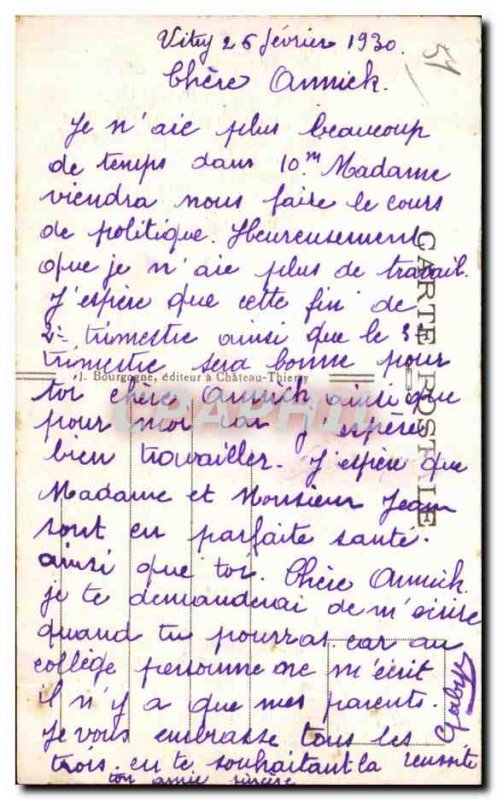 Vitry 26 février 1930.
51
Chère Annick.
Je n'aie plus beaucoup
de temps dans 10m Madame
viendra nous faire le cours
de politique. Heureusement
que je n'aie plus de travail.
J'espère que cette fin de
2e trimestre ainsi que le 3e
trimestre sera bonne pour
toi chère Annick ainsi que
pour moi car j'espère
bien travailler. J'espère que
Madame et Monsieur Jean
sont en parfaite santé.
ainsi que toi. Chère Annick
je te demanderai de m'écrire
quand tu pourras car au
collège personne ne m'écrit
il n'y a que mes parents.
Je vous embrasse tous les
trois. en te souhaitant la réussite
ton amie sincère
Gaby
CARTE POSTALE
J. Bourgogne, éditeur à Château-Thierry